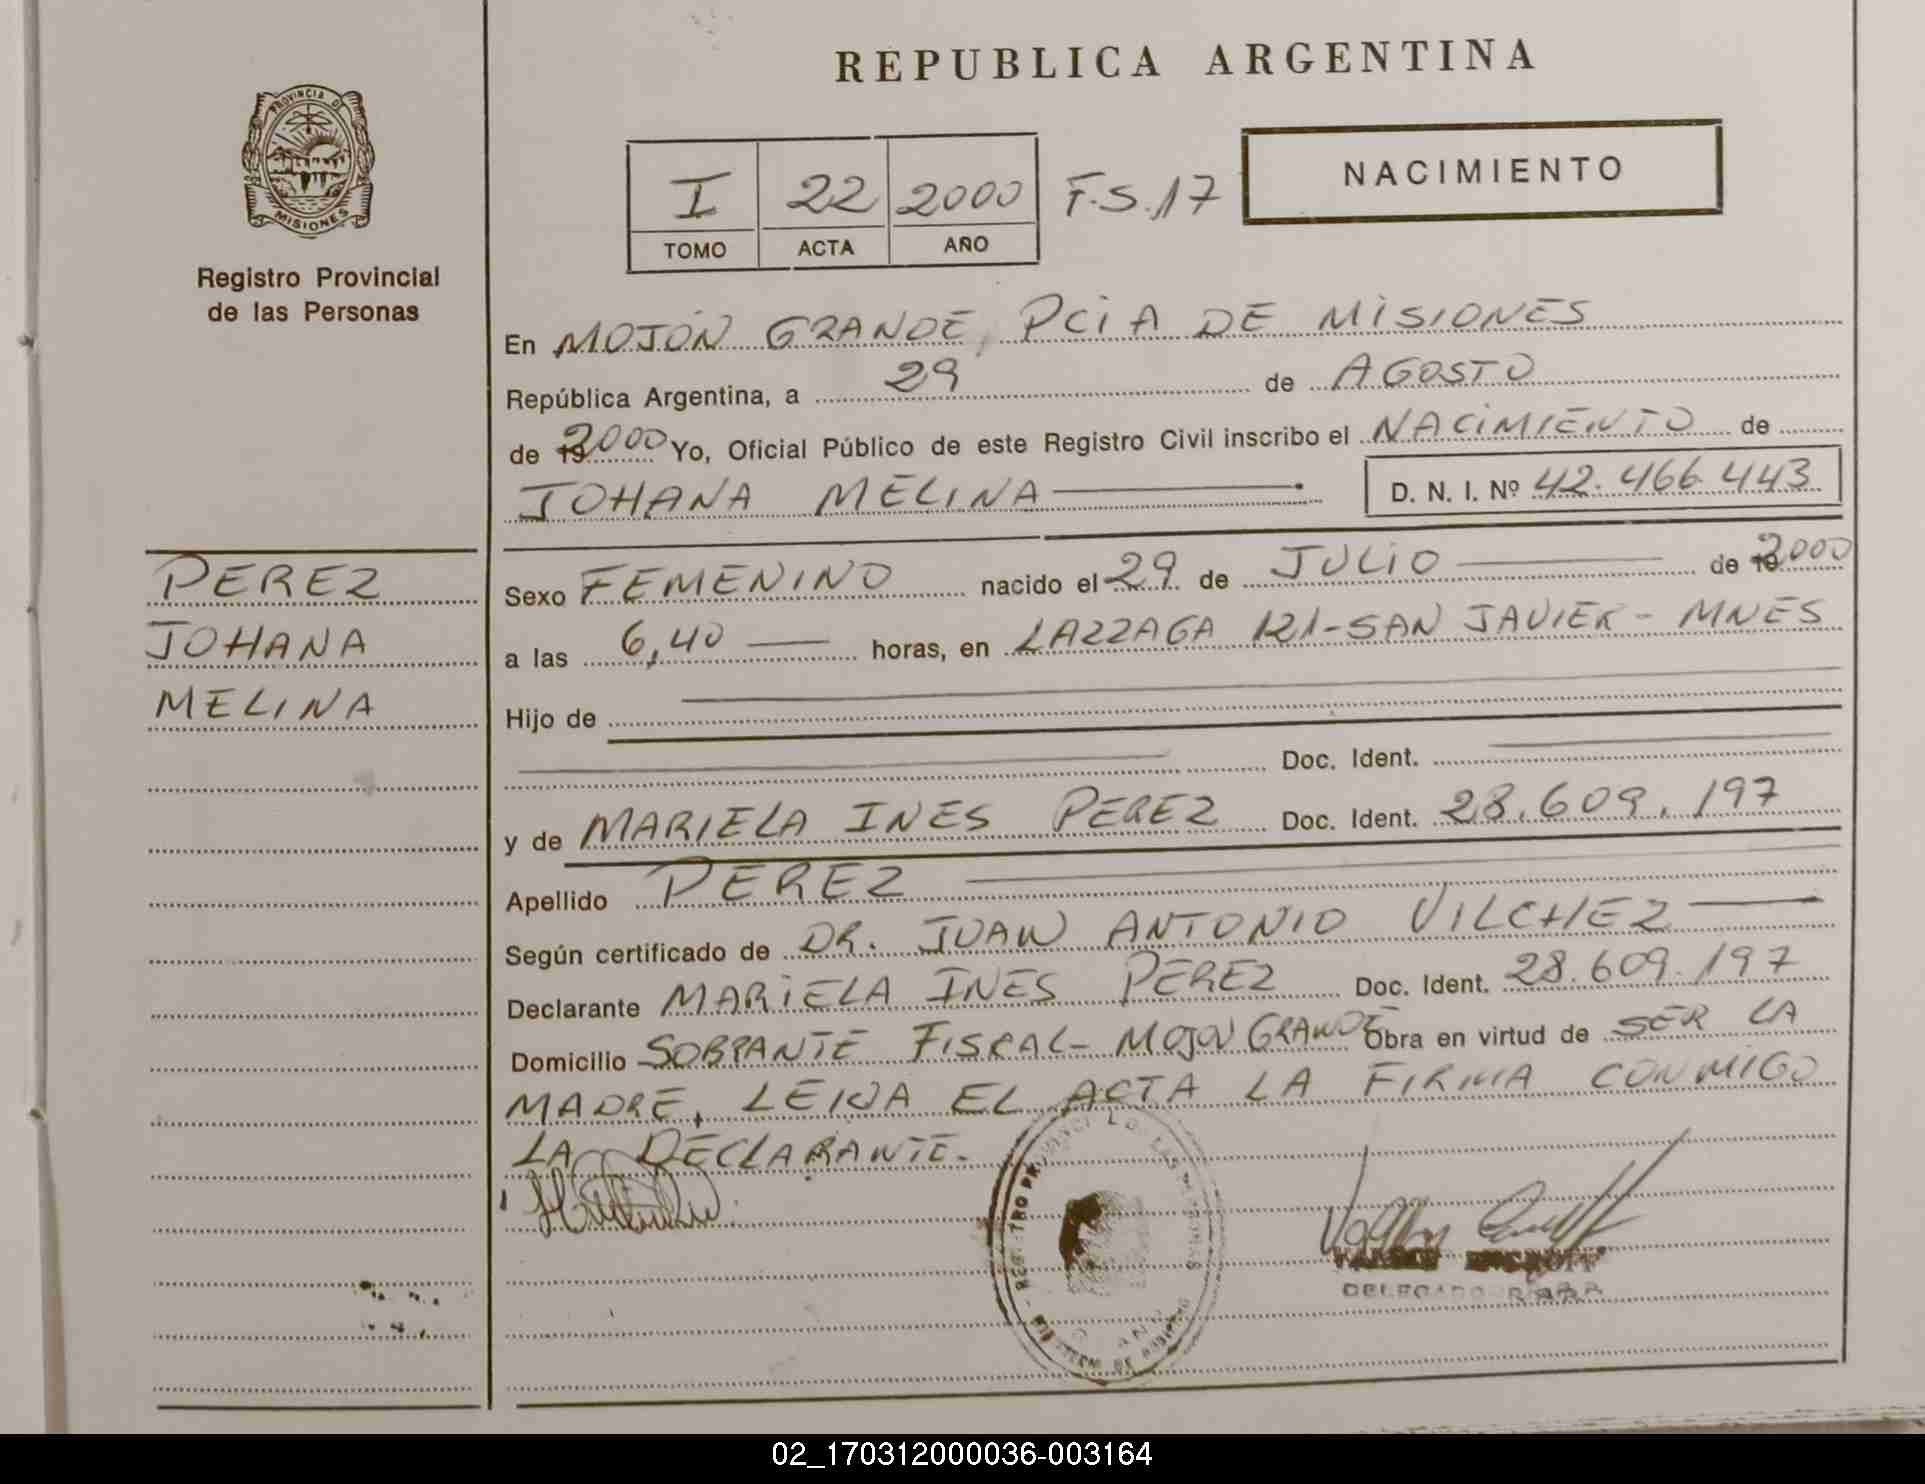 REPUBLICA ARGENTINA
PROVINCIA DE
MISIONES
Registro Provincial
de las Personas
I 22 2000 F.S.17
TOMO ACTA AÑO
NACIMIENTO
En MOJÓN GRANDE, PCIA DE MISIONES
República Argentina, a 29 de AGOSTO
de 2000 Yo, Oficial Público de este Registro Civil inscribo el NACIMIENTO de
JOHANA MELINA D. N. I. Nº 42.466.443
PEREZ
JOHANA
MELINA
Sexo FEMENINO nacido el 29 de JULIO de 2000
a las 6,40 horas, en LAZZAGA 121-SAN JAVIER - MNES
Hijo de
Doc. Ident.
y de MARIELA INES PEREZ Doc. Ident. 28.609.197
Apellido PEREZ
Según certificado de DR. JUAN ANTONIO VILCHEZ
Declarante MARIELA INES PEREZ Doc. Ident. 28.609.197
Domicilio SOBRANTE FISCAL- MOJON GRANDE Obra en virtud de SER LA
MADRE, LEIDA EL ACTA LA FIRMA CONMIGO
LA DECLARANTE.
DELEGADO
02_170312000036-003164